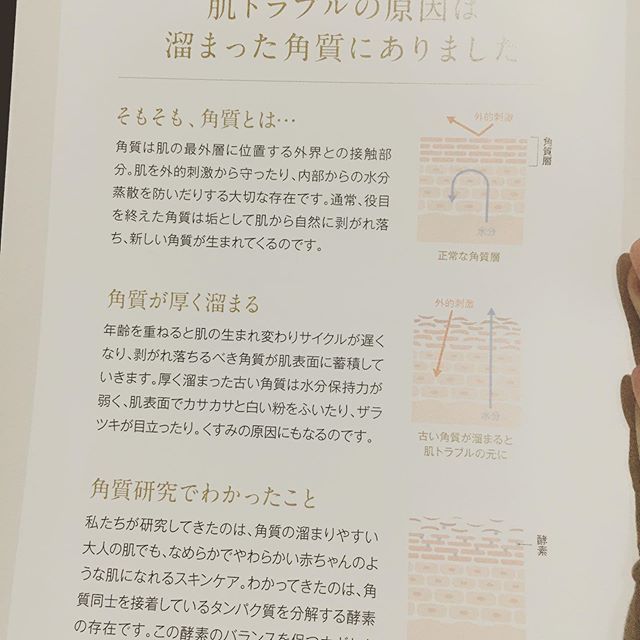 肌トラブルの原因は
溜まった角質にありました
そもそも、角質とは…
角質は肌の最外層に位置する外界との接触部
分。肌を外的刺激から守ったり、内部からの水分
蒸散を防いだりする大切な存在です。通常、役目
を終えた角質は垢として肌から自然に剥がれ落
ち、新しい角質が生まれてくるのです。
外的刺激
角質層
水分
正常な角質層
角質が厚く溜まる
年齢を重ねると肌の生まれ変わりサイクルが遅く
なり、剥がれ落ちるべき角質が肌表面に蓄積して
いきます。厚く溜まった古い角質は水分保持力が
弱く、肌表面でカサカサと白い粉をふいたり、ザラ
ツキが目立ったり。くすみの原因にもなるのです。
外的刺激
水分
古い角質が溜まると
肌トラブルの元に
角質研究でわかったこと
私たちが研究してきたのは、角質の溜まりやすい
大人の肌でも、なめらかでやわらかい赤ちゃんのよ
うな肌になれるスキンケア。わかってきたのは、角
質同士を接着しているタンパク質を分解する酵素
の存在です。この酵素のバランスを保つ
酵素